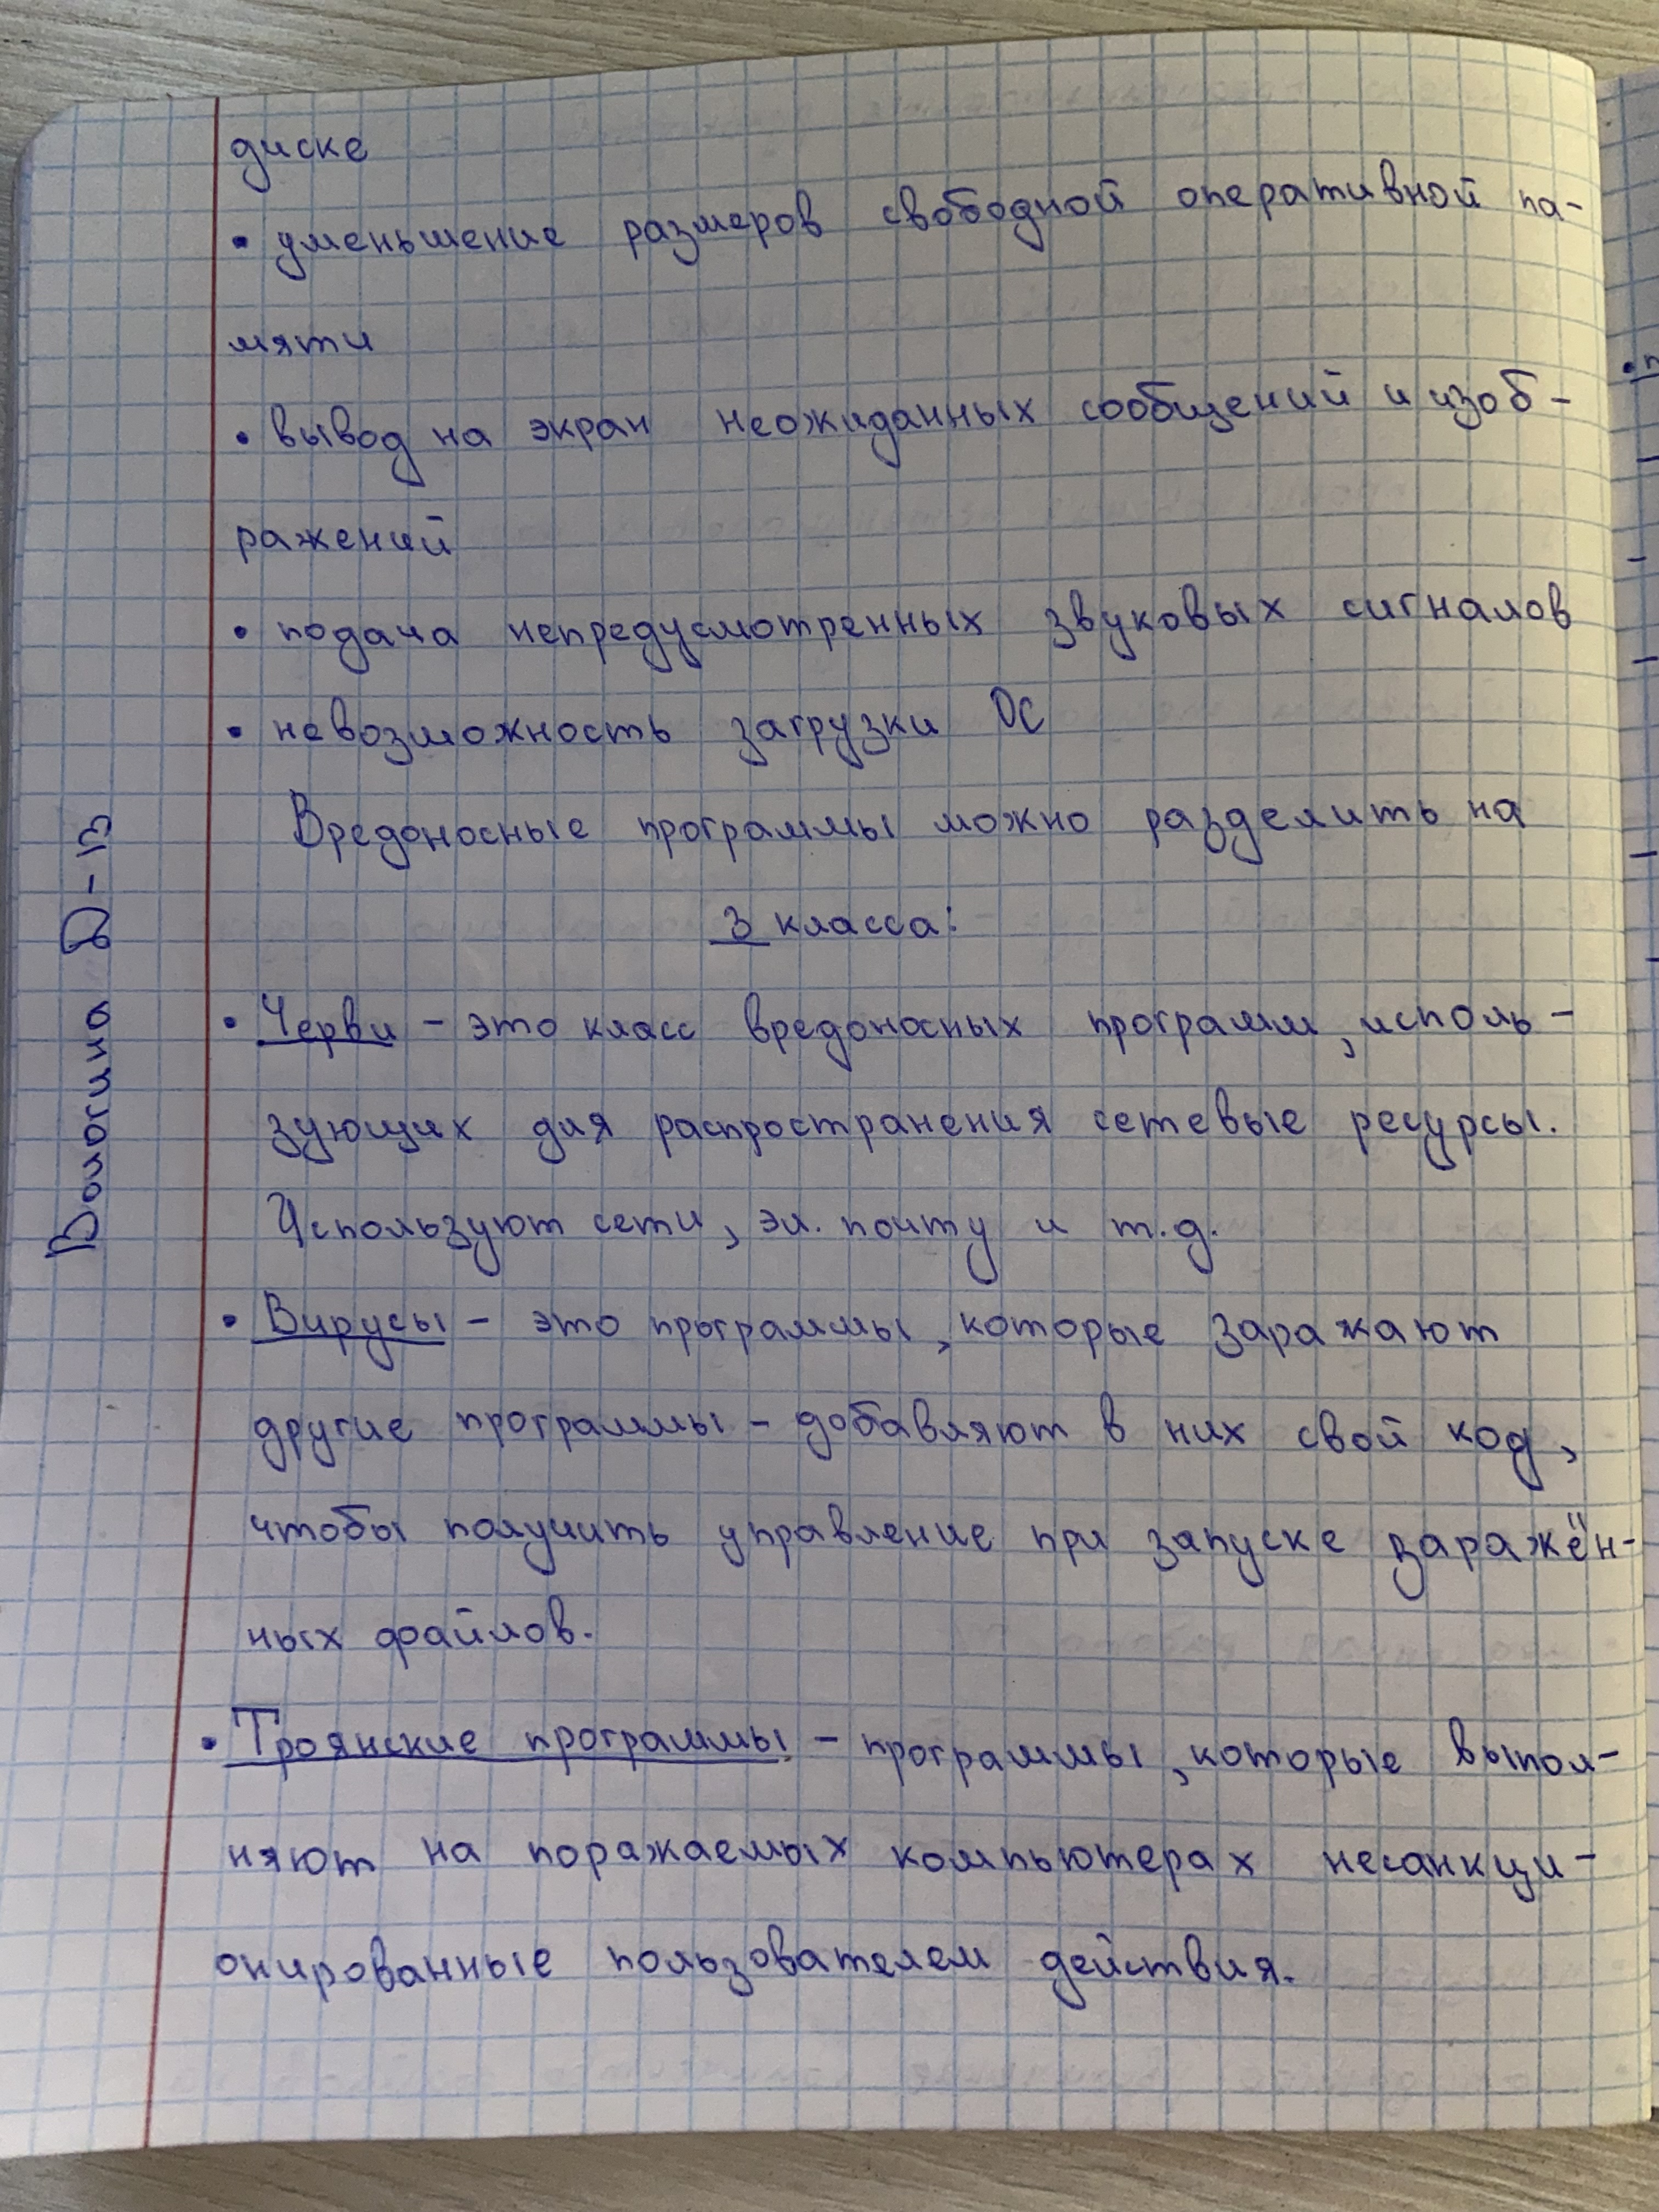 диске
• уменьшение размеров свободной оперативной па-
мяти
• вывод на экран неожиданных сообщений и изоб-
ражений
• подача непредусмотренных звуковых сигналов
• невозможность загрузки ОС
Вредоносные программы можно разделить на
3 класса:
• Черви – это класс вредоносных программ, исполь-
зующих для распространения сетевые ресурсы.
Используют сети, эл. почту и т.д.
• Вирусы – это программы, которые заражают
другие программы – добавляют в них свой код,
чтобы получить управление при запуске заражён-
ных файлов.
• Троянские программы – программы, которые выпол-
няют на поражаемых компьютерах несанкци-
онированные пользователем действия.
Вологина Д-13